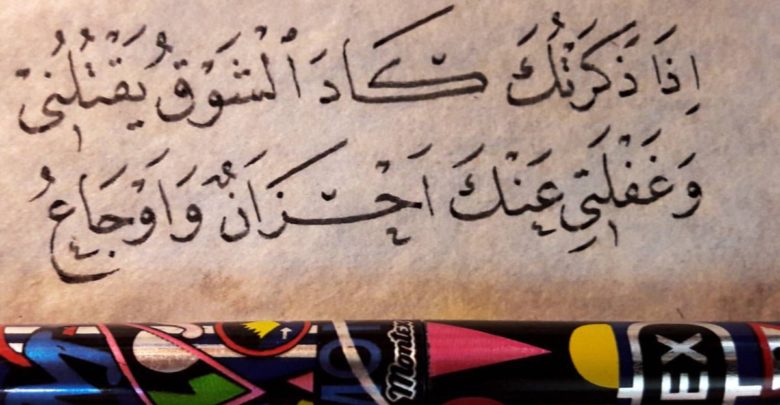 اِذَا ذَكَرْتُكَ كَادَ ٱلْشَوْقُ يَقْتُلُنِيْ
وَغَفْلَتِي عَنْكَ اَحْزَانٌ وَاَوْجَاعُ
Montex
EX